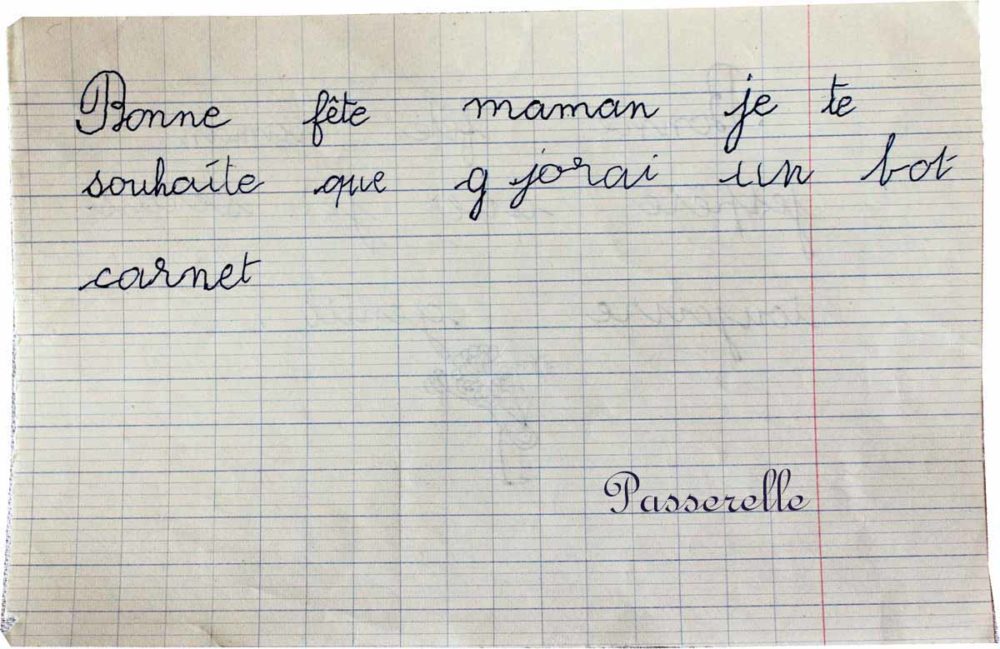 Bonne fête maman je te
souhaite que g jorai un bot
carnet
Passerelle